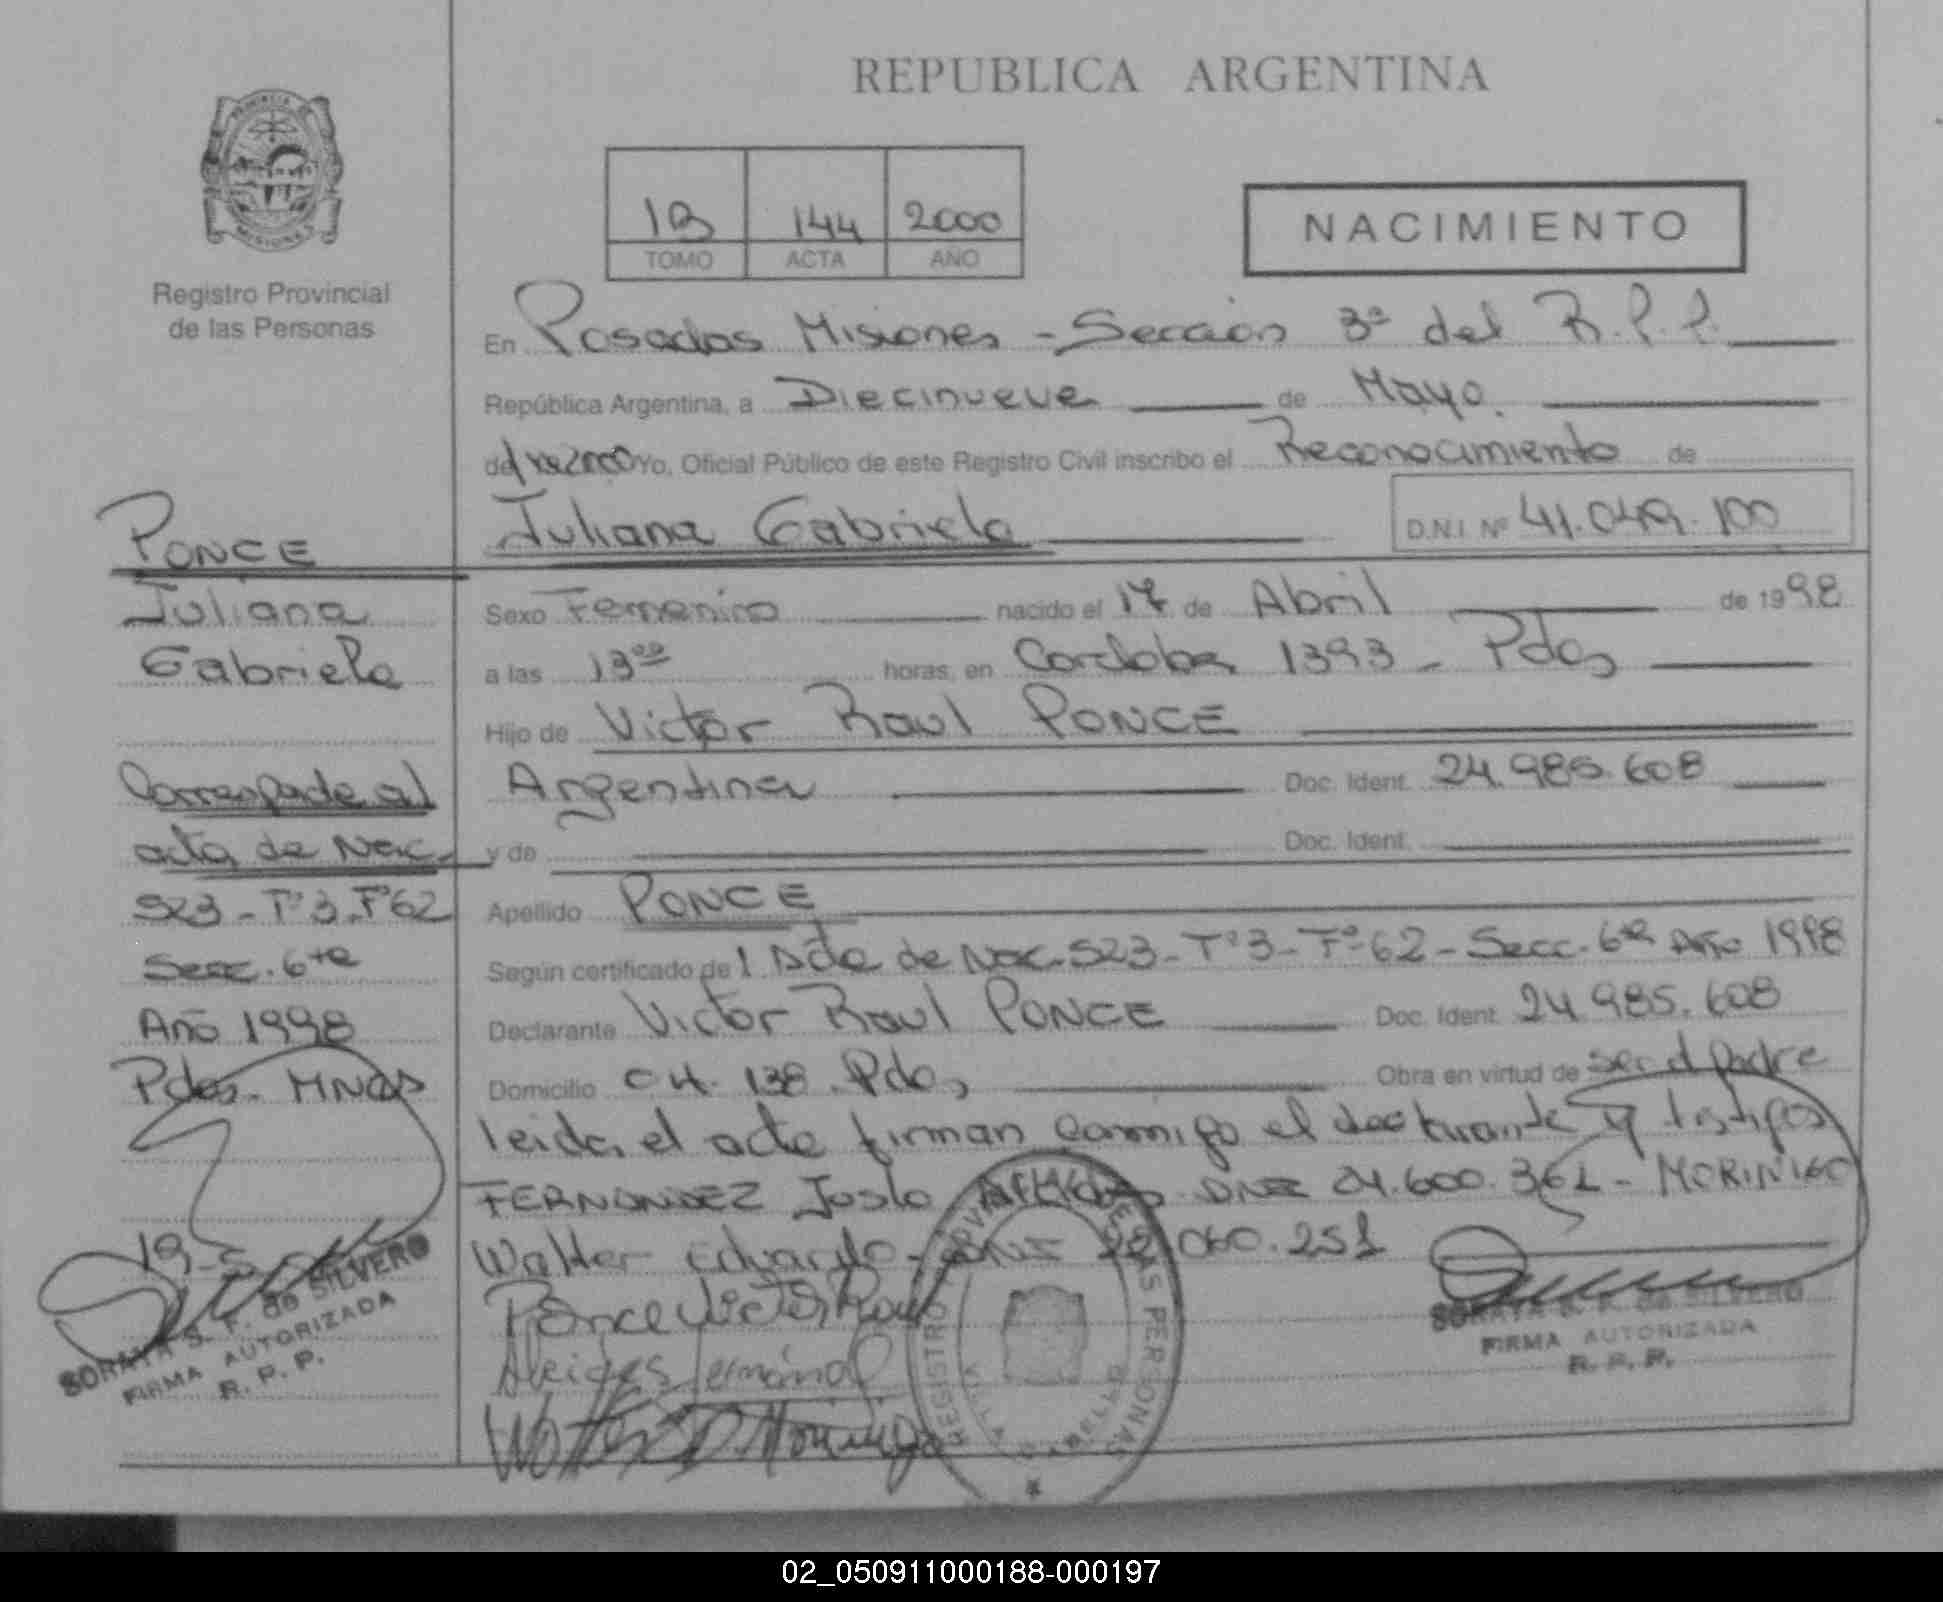 REPUBLICA ARGENTINA
PROVINCIA DE
MISIONES
Registro Provincial
de las Personas
1B 144 2000
TOMO ACTA AÑO
NACIMIENTO
En Posadas Misiones - Sección 3ª del R.P.P.
República Argentina, a Diecinueve de Mayo.
del 2000 Yo, Oficial Público de este Registro Civil inscribo el Reconocimiento de
Juliana Gabriela D.N.I. Nº 41.049.100
Sexo Femenino nacido el 17 de Abril de 1998
a las 13⁰⁰ horas, en Cordoba 1393 - Pdas
Hijo de Victor Raul PONCE
Argentina Doc. Ident. 24.985.608
y de Doc. Ident.
Apellido PONCE
Según certificado del Acta de Nac. 523 - Tº3 - Fº62 - Secc. 6ta Año 1998
Declarante Victor Raul PONCE Doc. Ident. 24.985.608
Domicilio CH. 138. Pdas Obra en virtud de ser el padre
leida el acta firman conmigo el declarante y testigos
FERNANDEZ Justo DNI 24.600.361 - MORINIGO
Walter Eduardo - 22.060.251
Ponce Victor Raul
Alcides Fernández
PONCE
Juliana
Gabriela
Corresponde al
acta de Nac.
523 - Tº3 - Fº62
Secc. 6ta
Año 1998
Pdas. MNES
SORAYA S. F. de SILVERO
FIRMA AUTORIZADA
R. P. P.
SORAYA S. F. de SILVERO
FIRMA AUTORIZADA
R. P. P.
02_050911000188-000197